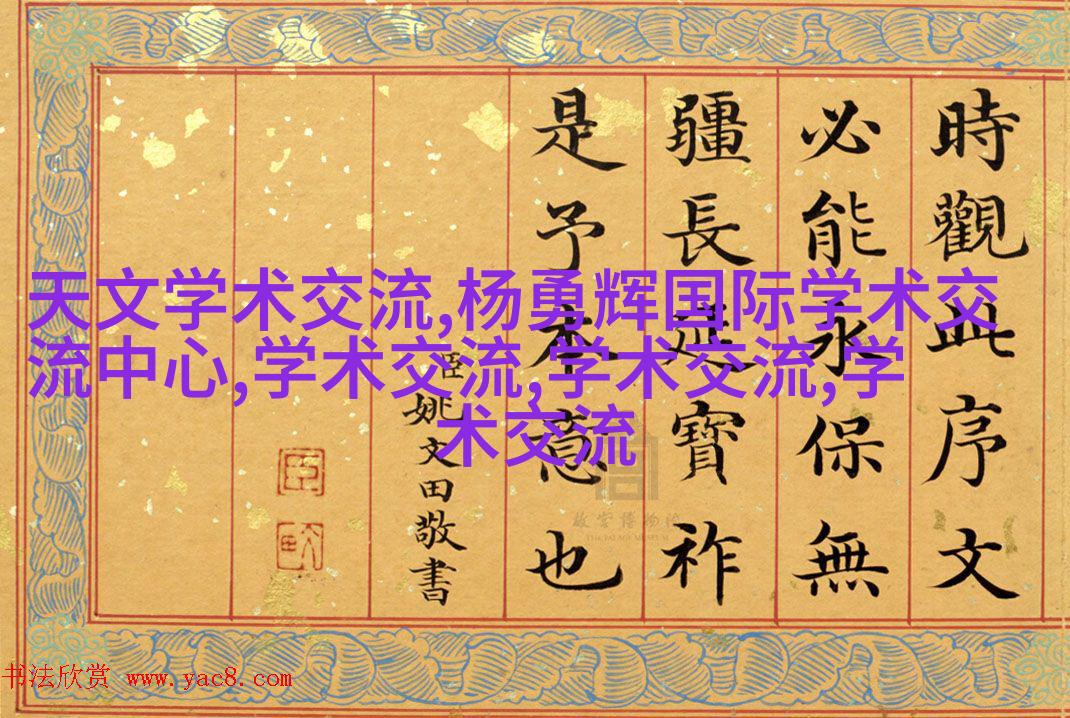 時觀此序文
必能永保無
疆長延寶祚
是予本意也
臣姚文田敬書
天文学术交流,杨勇辉国际学术交
流中心,学术交流,学术交流,学
术交流
故宫博物院
THE PALACE MUSEUM
书法欣赏 www.yac8.com